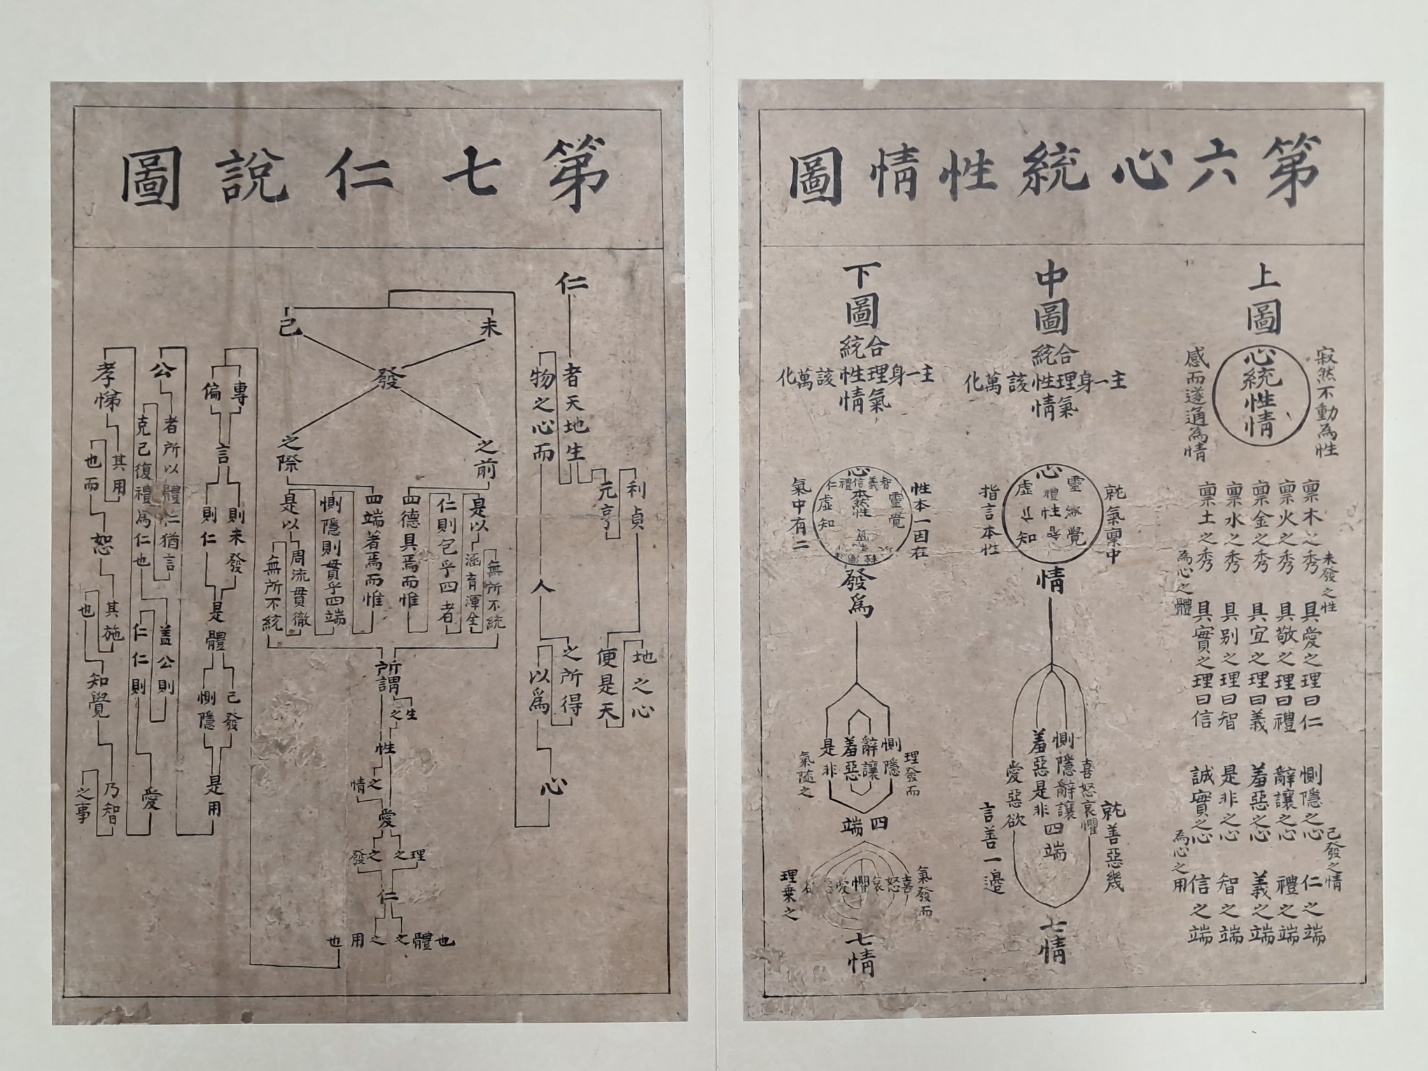 第六心統性情圖
上圖
寂然不動為性
心統性情
感而遂通為情
未發之性
已發之情
稟木之秀 具愛之理曰仁 惻隱之心 仁之端
稟火之秀 具敬之理曰禮 辭讓之心 禮之端
稟金之秀 具宜之理曰義 羞惡之心 義之端
稟水之秀 具別之理曰智 是非之心 智之端
稟土之秀 具實之理曰信 誠實之心 信之端
為心之體
為心之用
中圖
主一身
合理氣
統性情
該萬化
就氣稟中
心
靈 覺
禮
性
虛 知
指言本性
情
喜怒哀懼
惻隱辭讓
羞惡是非
四端
愛惡欲
就善惡幾
言善一邊
七情
下圖
主一身
合理氣
統性情
該萬化
性本一因在
心
智義信禮仁
靈覺
本然性
虛知
氣中有二
發為
理發而
惻隱
辭讓
羞惡
是非
氣隨之
四端
氣發而
喜怒哀懼愛
理乗之
七情
第七仁說圖
仁
者天地生
物之心而
元亨
利貞
便是天
地之心
人
之所得
以為
心
未
已
發
之前
是以
涵育渾全
無所不統
仁則包乎四者
四德具焉而惟
之際
是以
周流貫徹
無所不統
惻隱則貫乎四端
四端著焉而惟
所謂
生之
性
之情
愛
理之
之發
仁
體之也
之用也
專言
則未發
是體
已發
是用
偏言
則仁
惻隱
公
者所以體仁猶言
克己復禮為仁也
蓋公則
仁仁則
愛
孝悌
其用
也而
恕
其施
也
知覺
乃智
之事